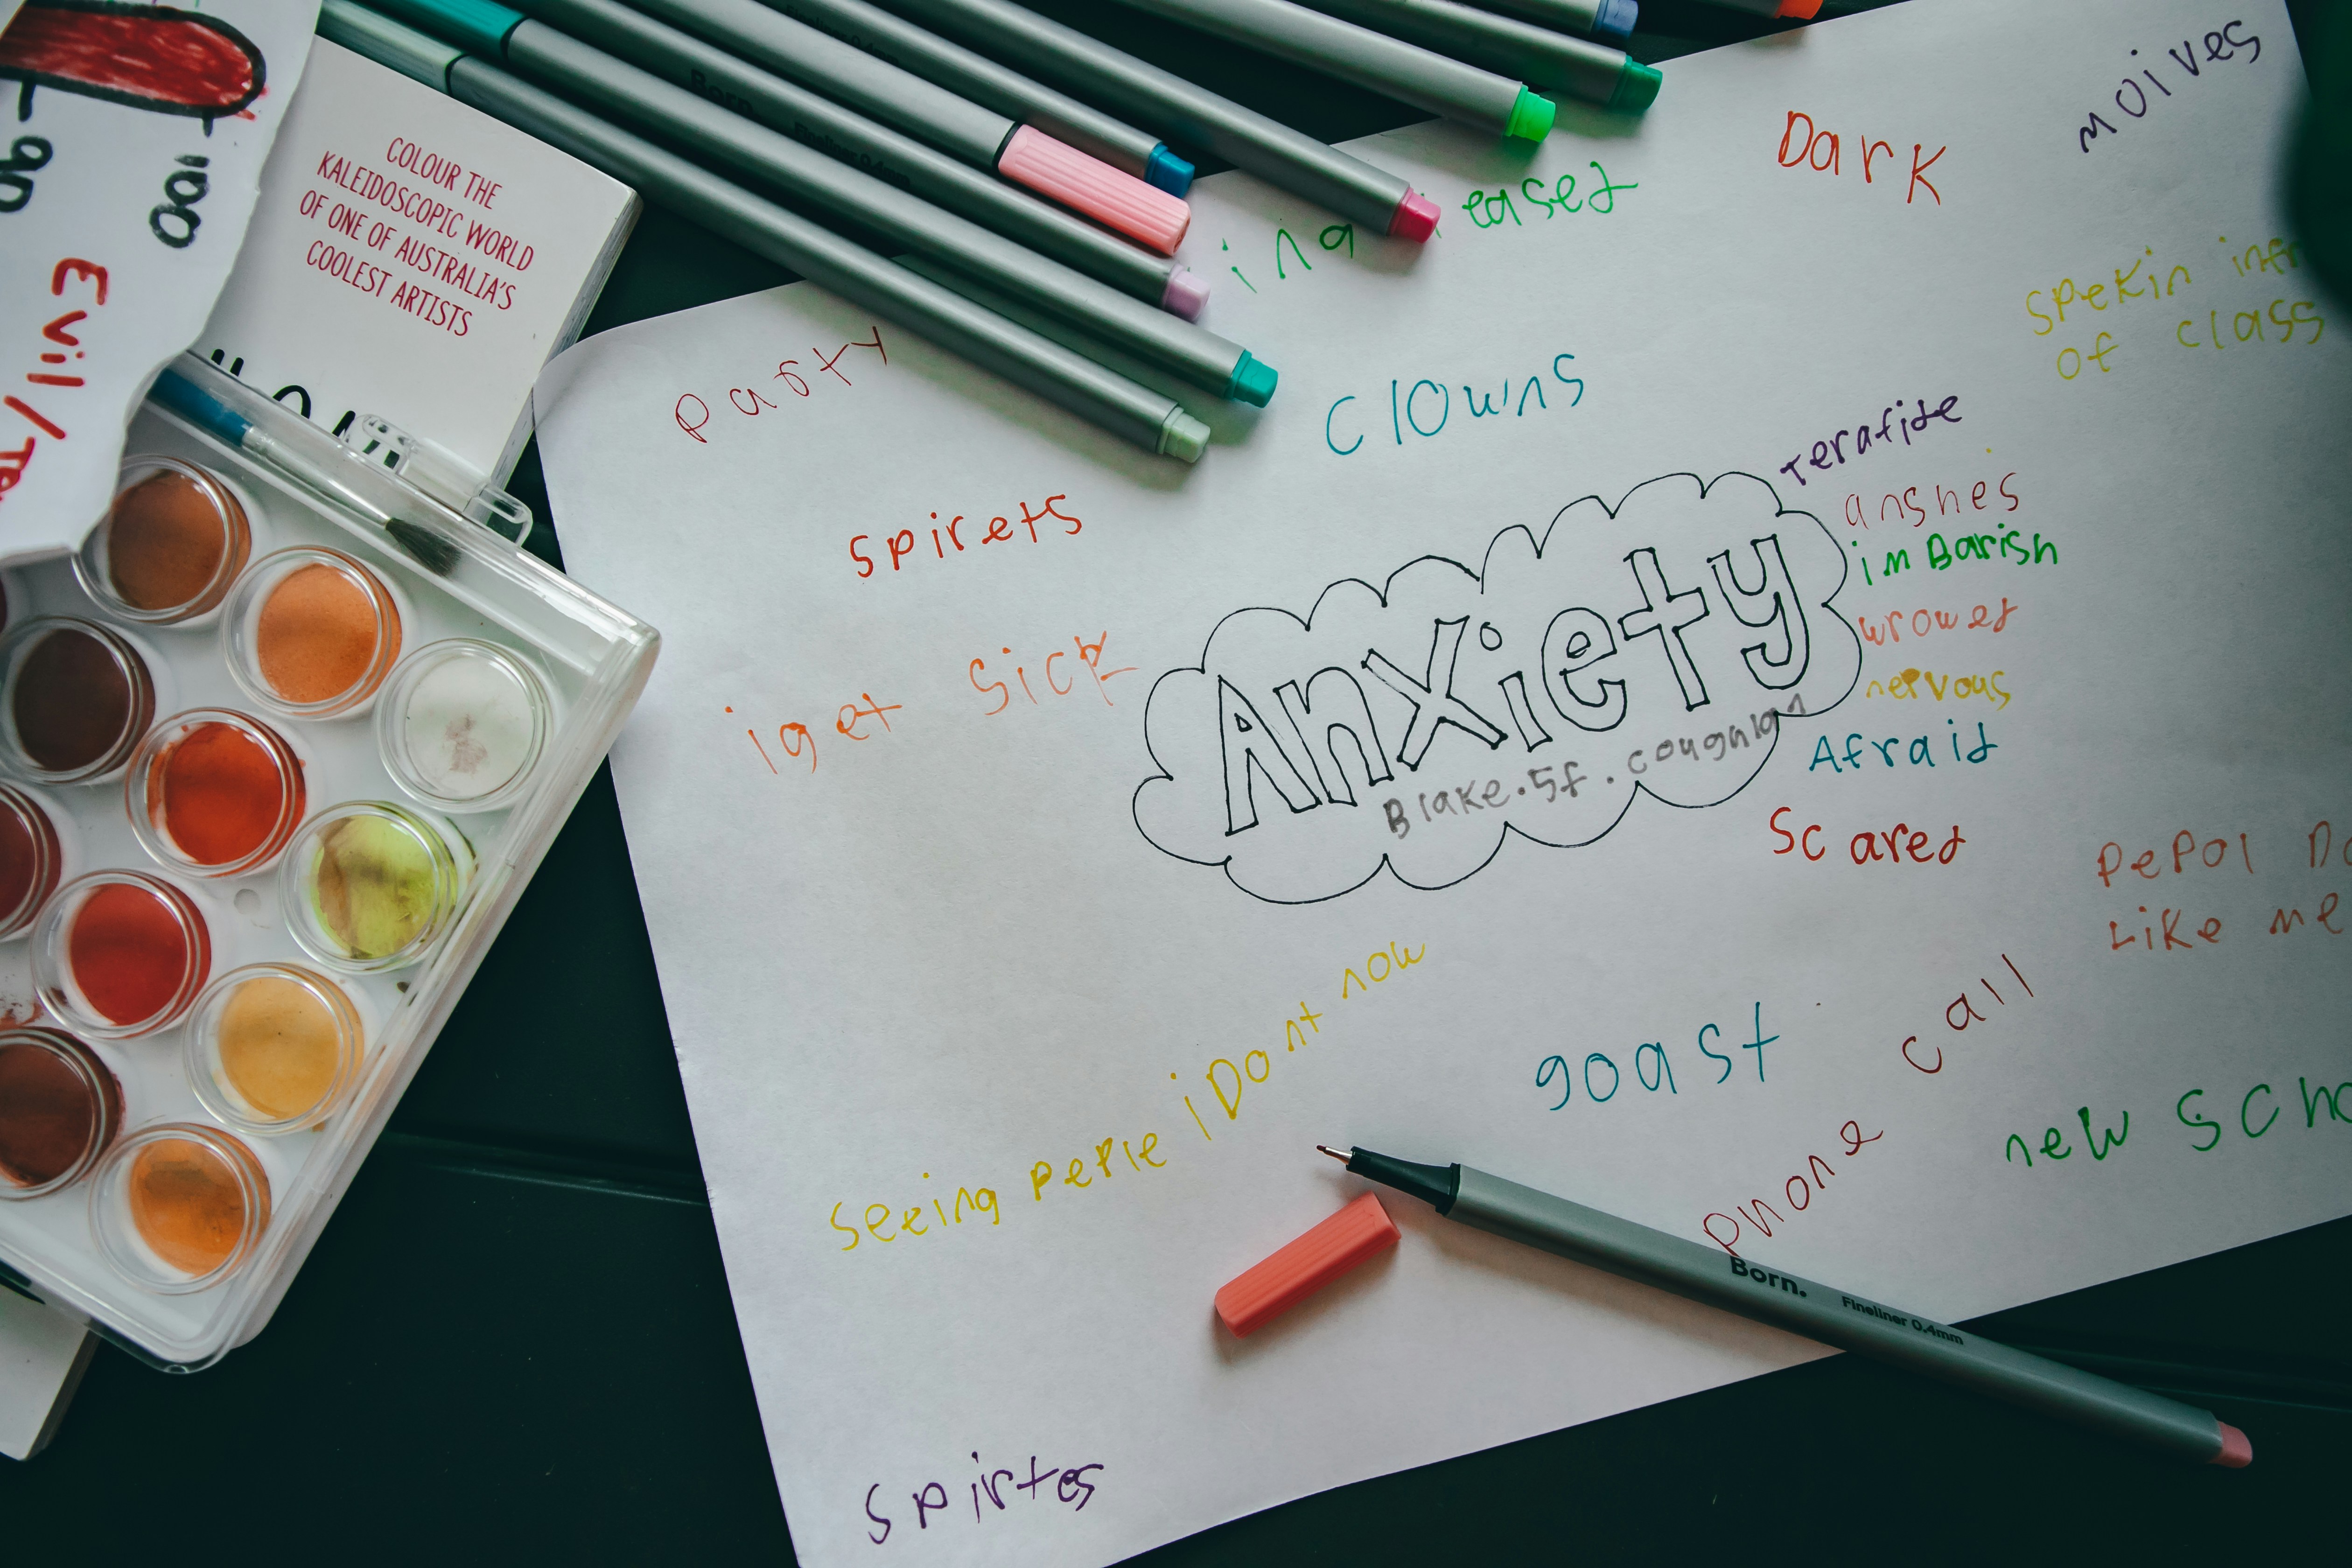 moives
Dark
spekin
of class
party
clowns
spirets
terafide
anshes
im Barish
wrowed
nervous
Afraid
Scared
i get sick
Anxiety
Blake.5f.coughlan
pepol
Like me
seeing peple i Dont now
goast
phone call
new
spirtes
COLOUR THE
KALEIDOSCOPIC WORLD
OF ONE OF AUSTRALIA'S
COOLEST ARTISTS
Evil/
100
Born.
Fineliner 0.4mm
Born.
Fineliner 0.4mm